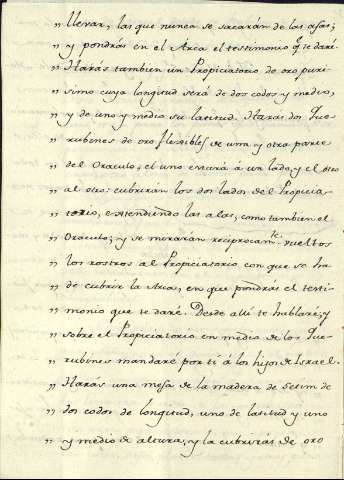 „ llevar, las que nunca se sacarán de las asas;
„ y pondrás en el Arca el testimonio q.e te daré.
„ Harás tambien un Propiciatorio de oro puri-
„ simo cuya longitud será de dos codos y medio,
„ y de uno y medio su latitud. Haras dos Que-
„ rubines de oro flexibles de una y otra parte
„ del Oraculo; el uno estará á un lado, y el otro
„ al otro: cubrirán los dos lados del Propicia-
„ torio, extendiendo las alas, como tambien el
„ Oraculo; y se mirarán reciprocam.te vueltos
„ los rostros al Propiciatorio con que se ha
„ de cubrir la Arca, en que pondrás el testi-
„ monio que te daré. Desde alli te hablaré, y
„ sobre el Propiciatorio en medio de los Que-
„ rubines mandaré por ti á los hijos de Israel.
„ Harás una mesa de la madera de Setim de
„ dos codos de longitud, uno de latitud y uno
„ y medio de altura, y la cubrirás de oro